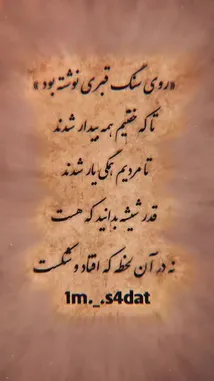 «روی سنگ قبری نوشته بود »
تا که خفتیم همه بیدار شدند
تا مردیم همگی یار شدند
قدر شیشه بدانید که هست
نه در آن لحظه که افتاد و شکست
1m._.s4dat